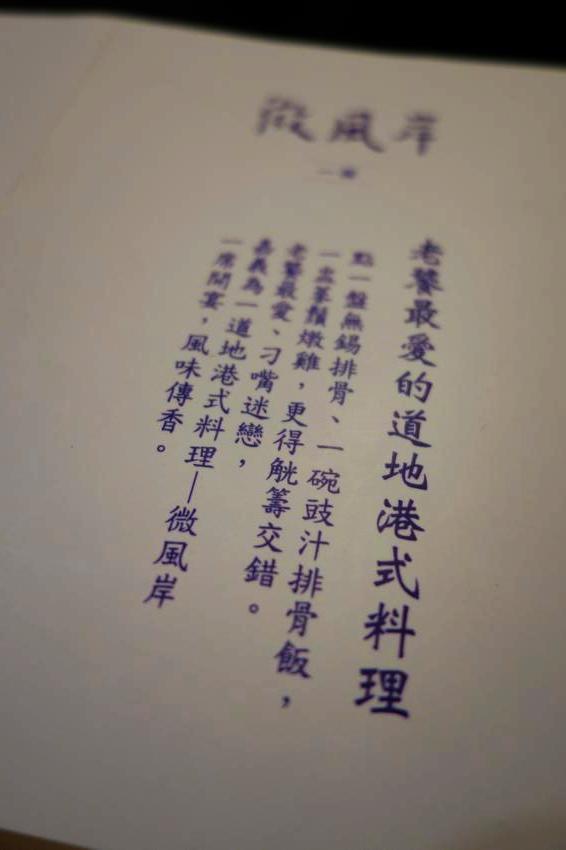 微風岸
老饕最愛的道地港式料理
點一盤無錫排骨、一碗豉汁排骨飯，
一盅蔘鬚燉雞，更得觥籌交錯。
老饕最愛、刁嘴迷戀，
嘉義為一道地港式料理—微風岸
一席間宴，風味傳香。